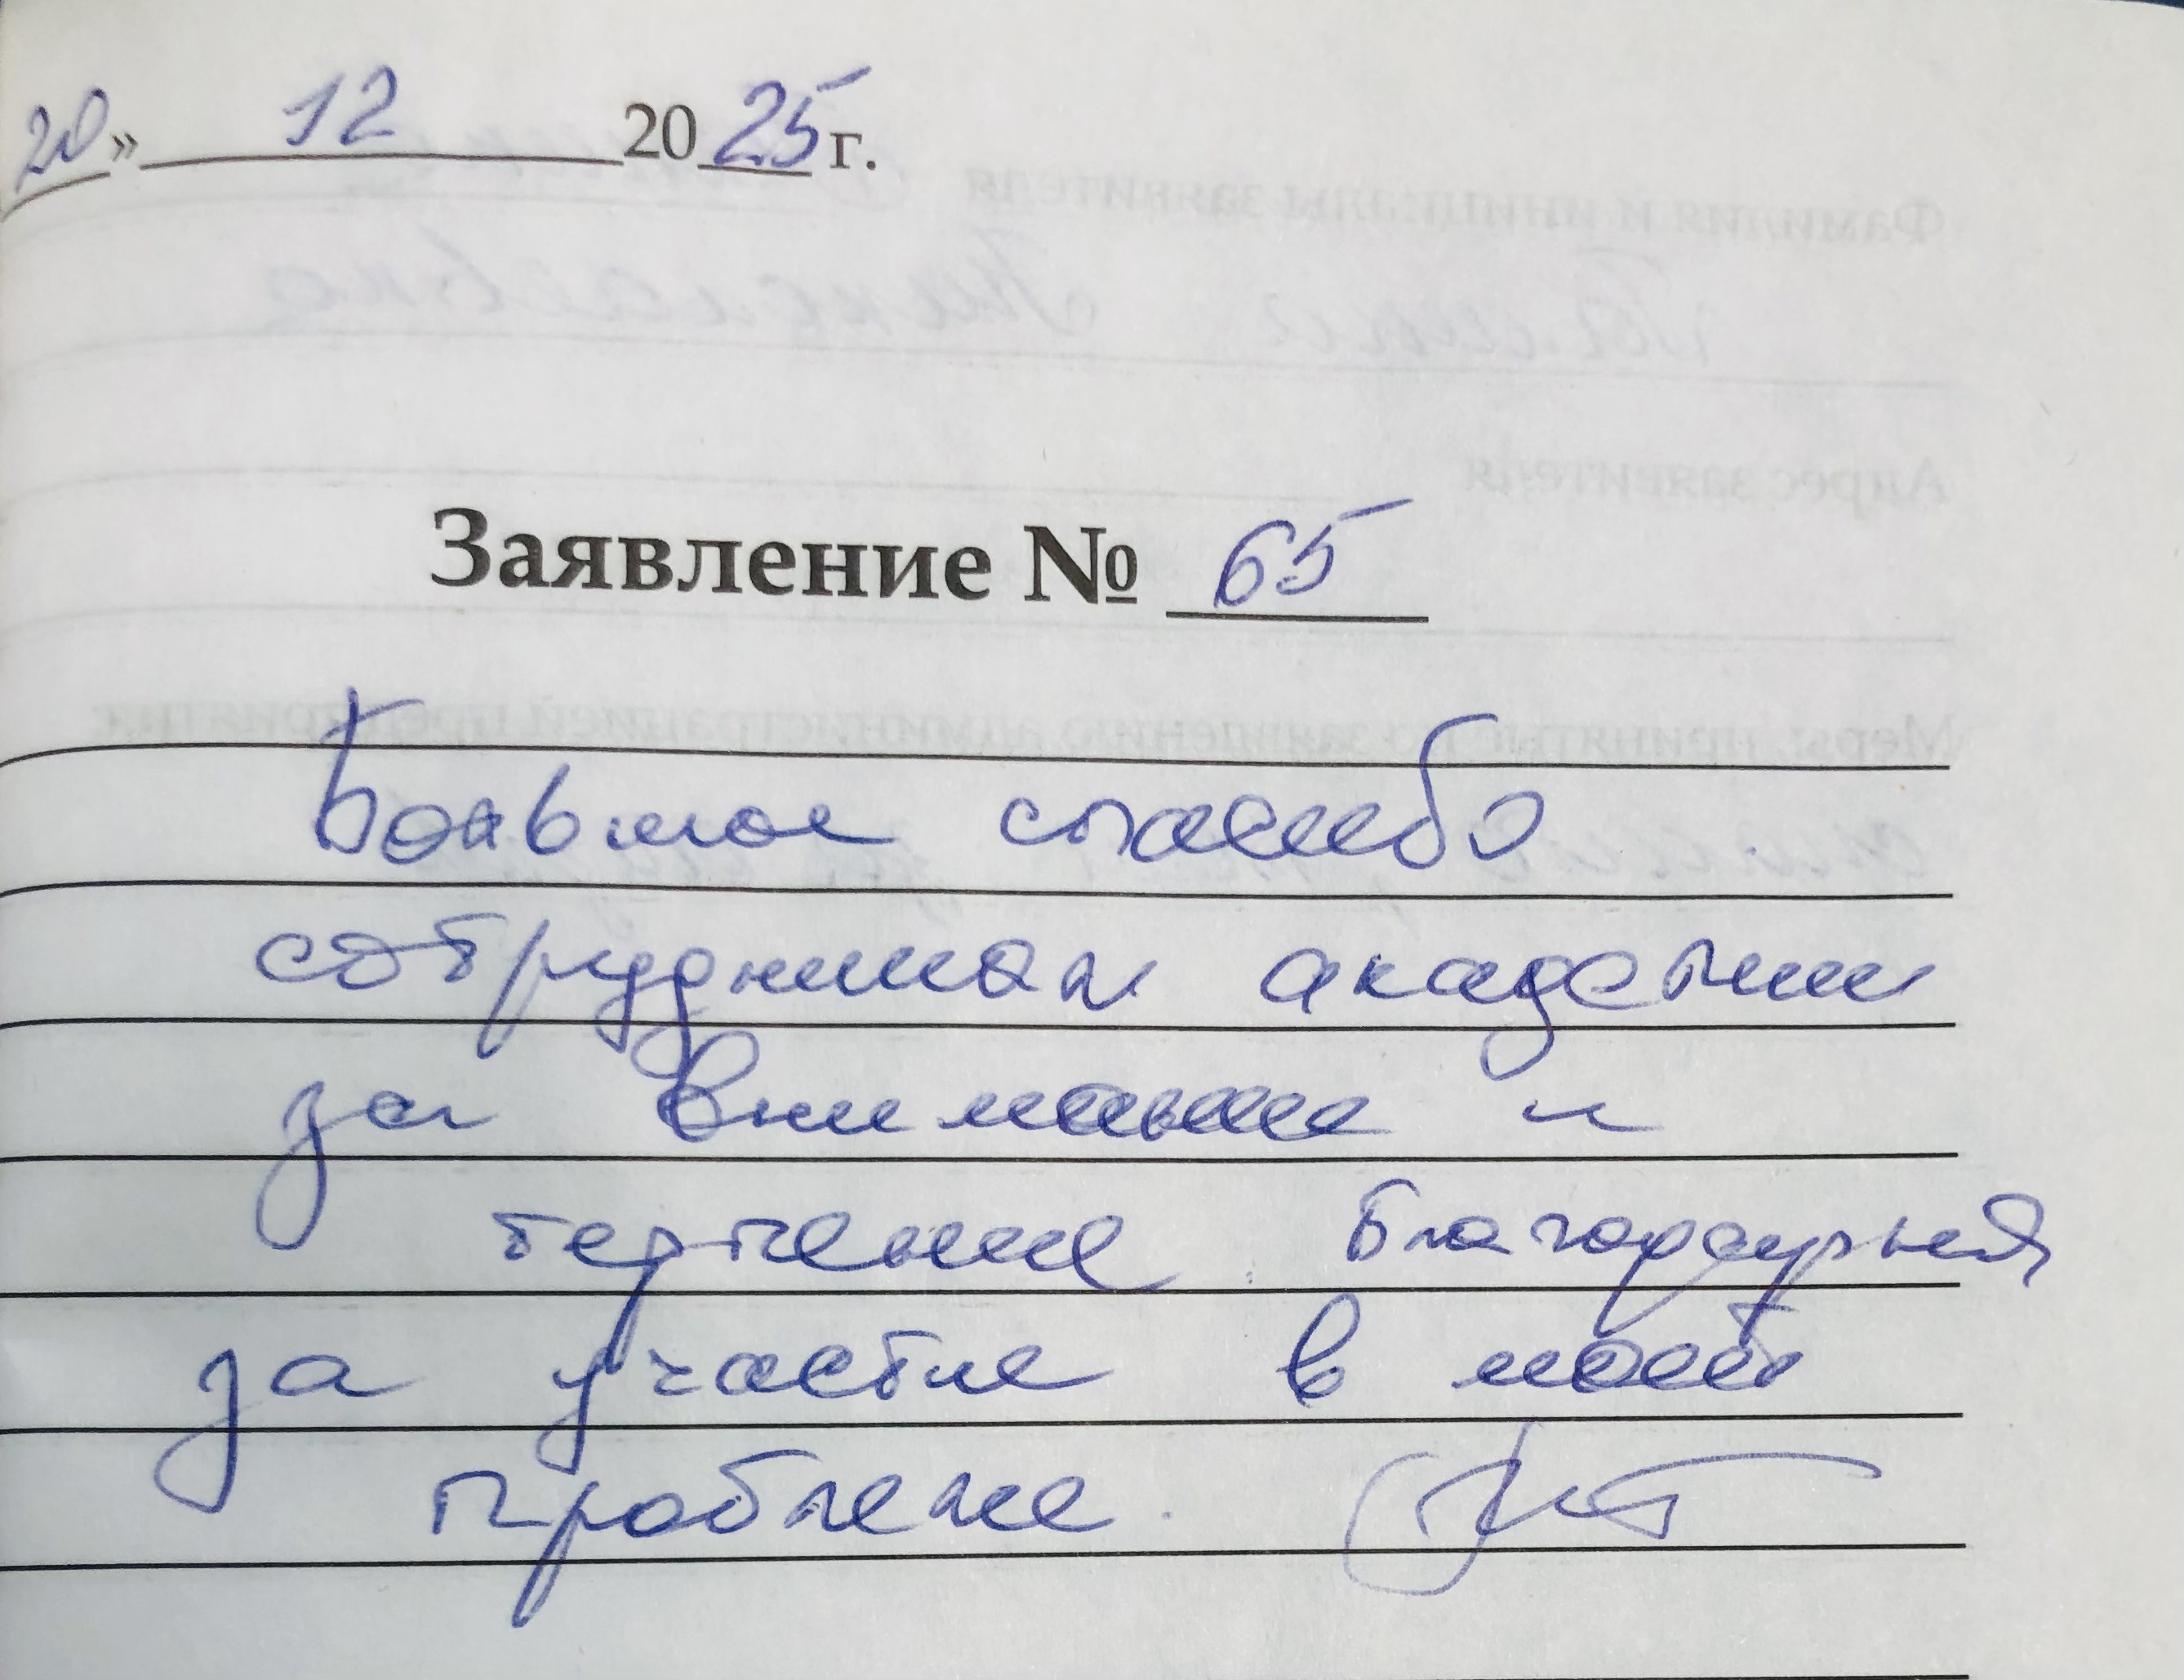 20» 12 2025 г.
Заявление № 65
Большое спасибо
сотрудникам академии
за внимание и
терпение. Благодарная
за участие в моей
проблеме.